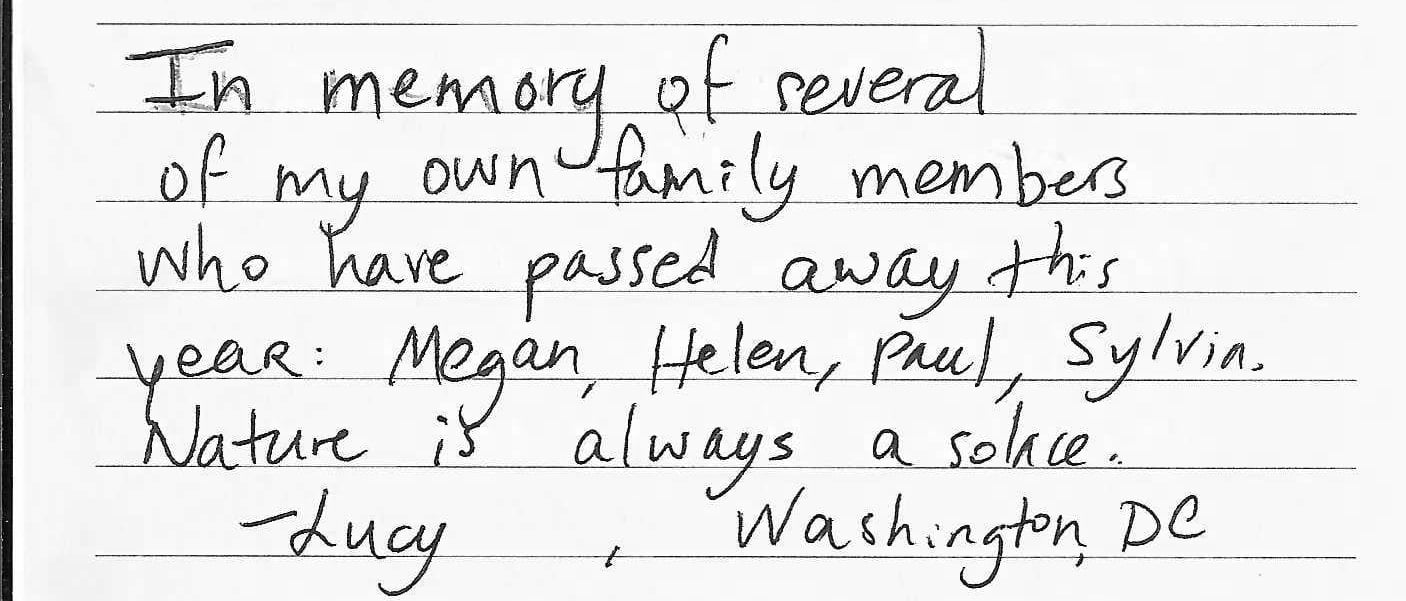 In memory of several
of my own family members
who have passed away this
year: Megan, Helen, Paul, Sylvia.
Nature is always a solace.
-Lucy , Washington, DC